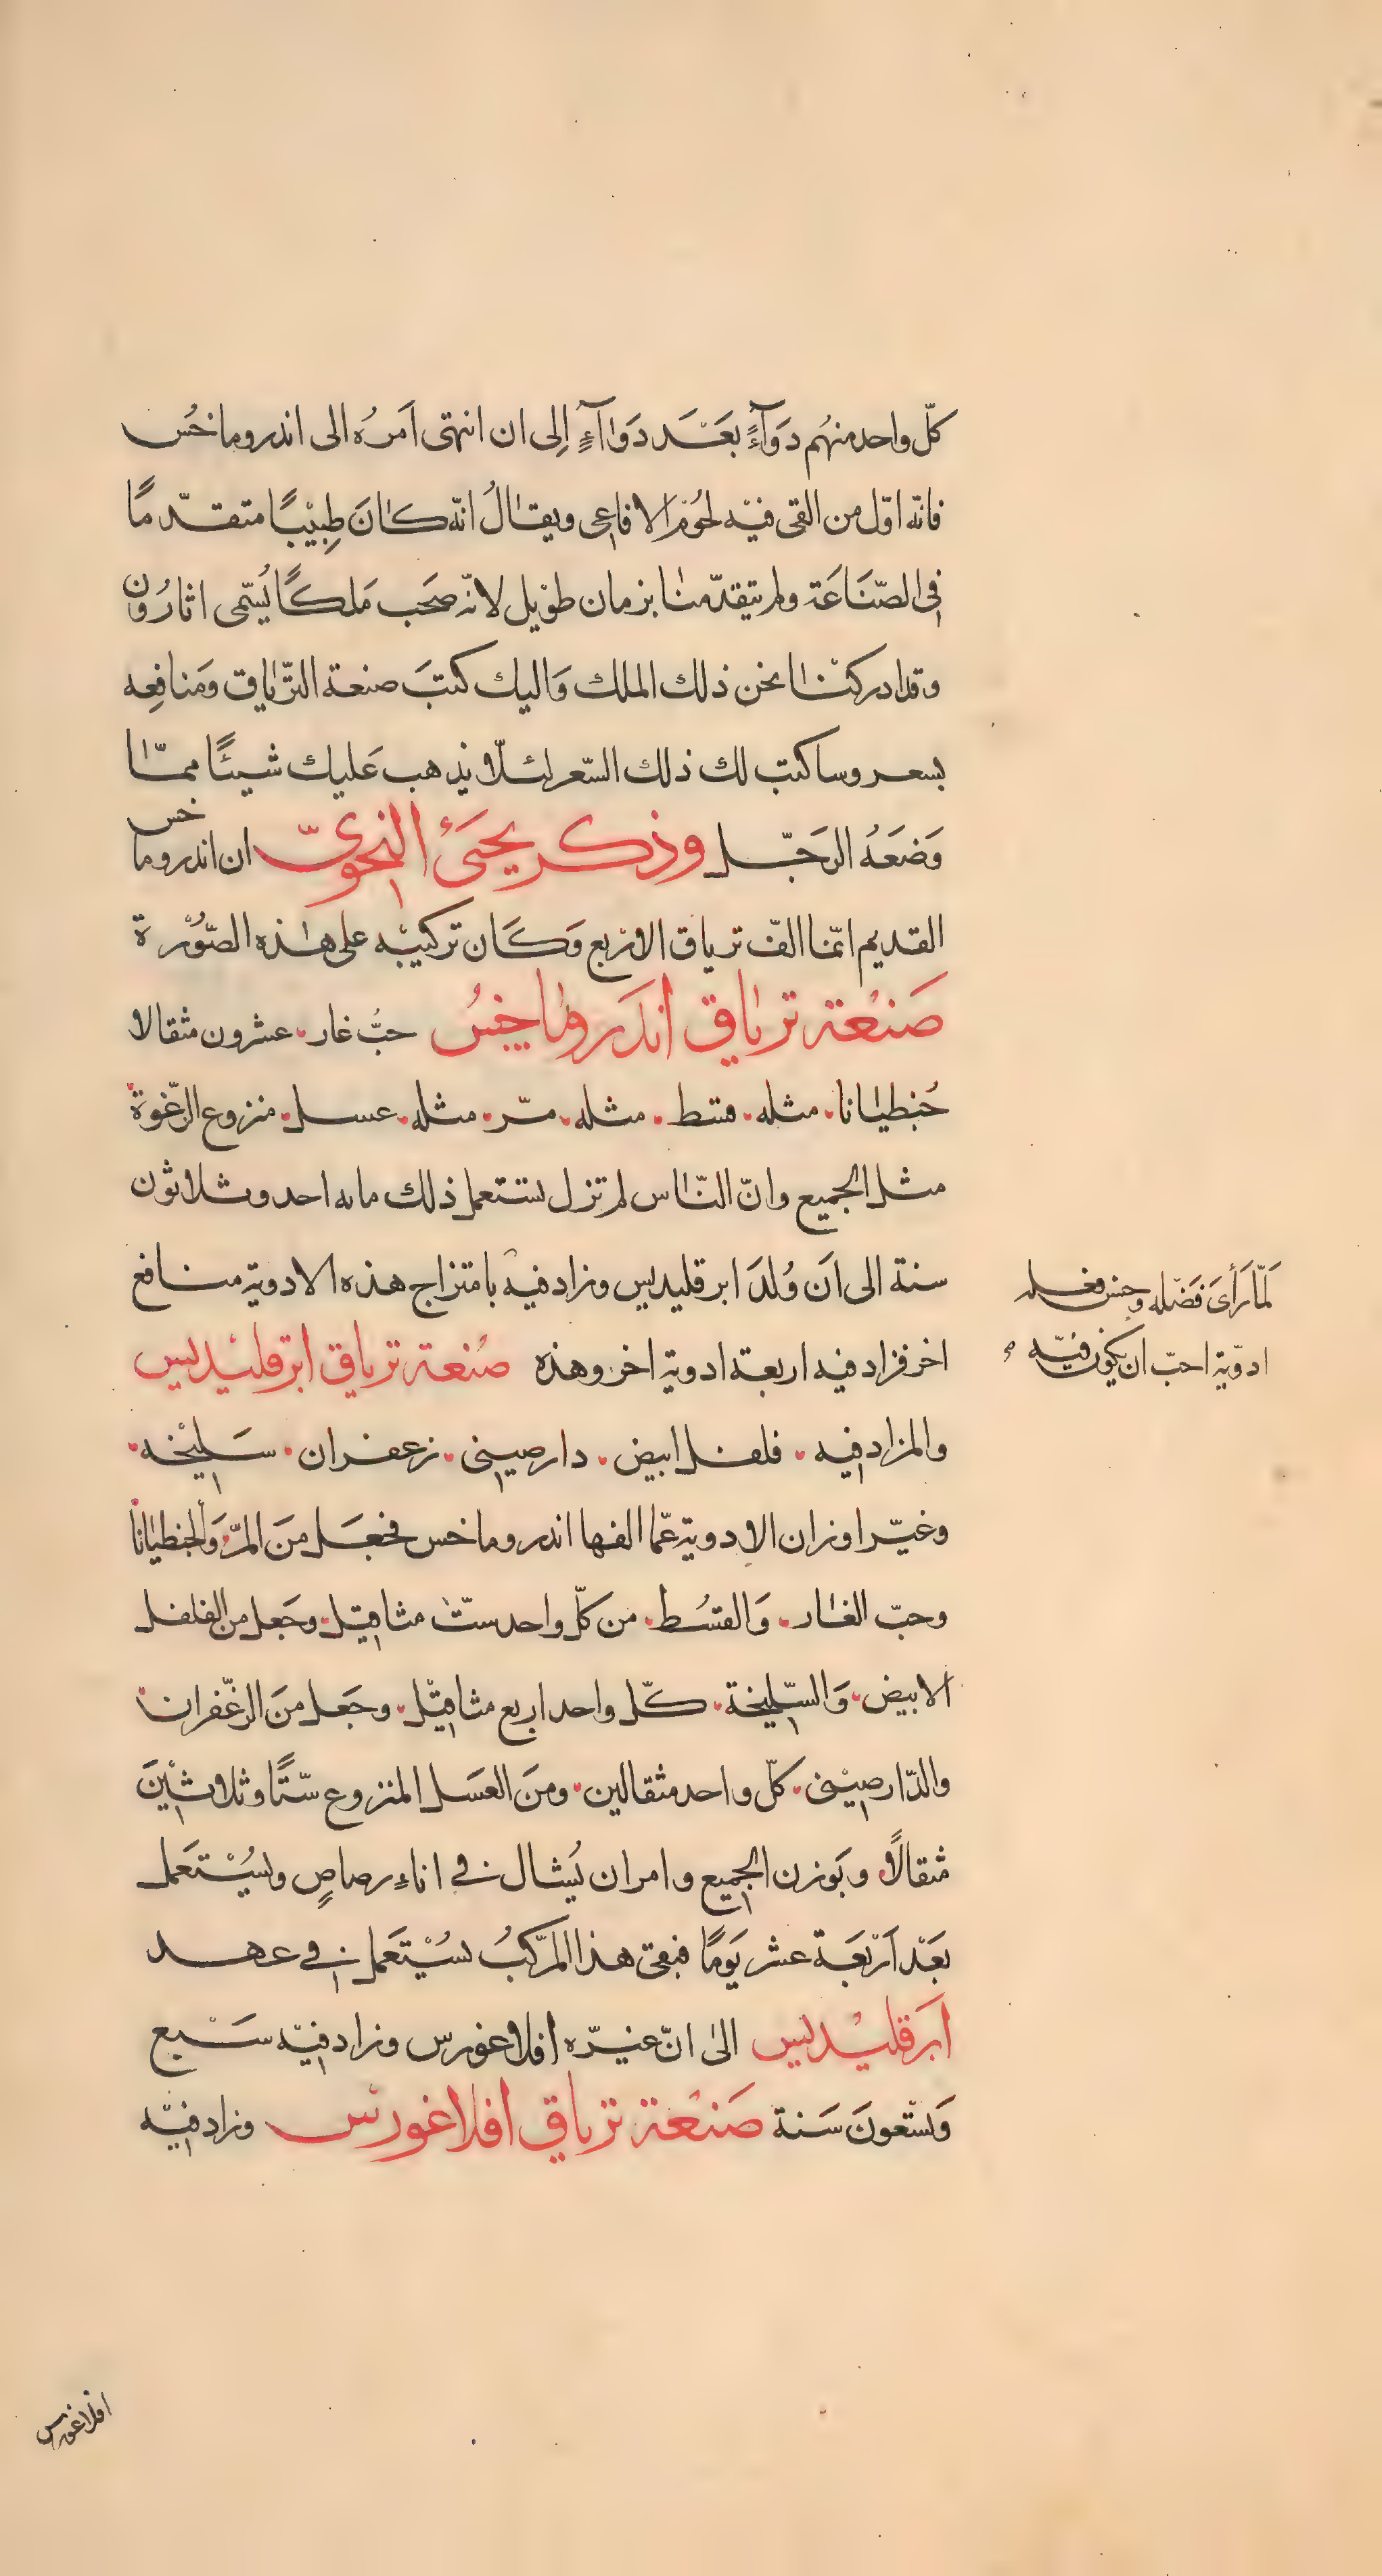 كلّ واحد منهُم دَوَآءً بعَدَ دَوَاآءٍ اِلى ان انتهى اَمرُه الى اندروماخُس
فانّه اوّل من القى فيْه لحُوْم الافاعى ويقالُ انّه كانَ طِبيْبًا متقدّمًا
فى الصّنَاعَة ولم يتقدّمنا بزمان طوْيل لانّه صَحَب مَلكًا يُسّمى اثارُون
وقد ادركنْا نحن ذلك الملك وَاليك كتبَ صنعة الترّياق ومَنافِعه
بسعر وساكتب لك ذلك السّعر لئلّا يذهب عَليك شيئًا ممّا
وَضَعَهُ الرَجّل وذكر يحيَىٰ النحوىّ ان اندروماخس
القديم انمّا الفّ ترياق الاربع وَكَان تركيبْه على هٰذه الصّوُرة
صَنعْة ترياق اندَروماخِسُ حبُّ غار. عشرون مثقالا
جُنطيانا. مثله. قسط. مثله. مرّ. مثله. عسل. منزوع الرّغوة
مثل الجميع وانّ النّاس لم تزل تستعمل ذلك مايه احد وثلاثون
سنة الى اَن وُلدَ ابرقليديس وزاد فيه بامتزاج هذه الادوية منافع
لَمّا رَأىَ فَضّله وحسن فعله
اخر فزاد فيه اربعة ادوية اخر وهذه صُنعة ترياق ابرقليْديس
ادوّية احبّ ان يكون فيّه
والمزاد فيه. فلفل ابيض. دارصينى. زعفران. سَليْخه.
وغيّر اوزان الادوية عمّا الفها اندروماخس فجعَل منَ المرّ وَالجنطيانا
وحبّ الغار. وَالقسُط. من كلّ واحد ستّ مثاقيل. وجَعل من الفلفل
الابيض. وَالسّليخة. كلّ واحد اربع مثاقيّل. وجَعل منَ الزغّفران
والدّارصيْنى. كلّ واحد مثقالين. ومنَ العسَل المنزوع ستّةً وثلاثيْنَ
مثقالًا وبَوزن الجميع وامر ان يُشال فى اناءِ رصاصٍ ويسُيْتعَمل
بعَدْ اَرْبعَة عشر يَومًا فبقى هذا المرّكبُ يسُيْتعَمل فى عهد
اَبَرقليْديس الى انّ غيّره افلاغورس وزاد فيّه سَبع
وَستّعونَ سَنة صَنعْة ترياق افلاغورس وزاد فيّه
افلاغورس